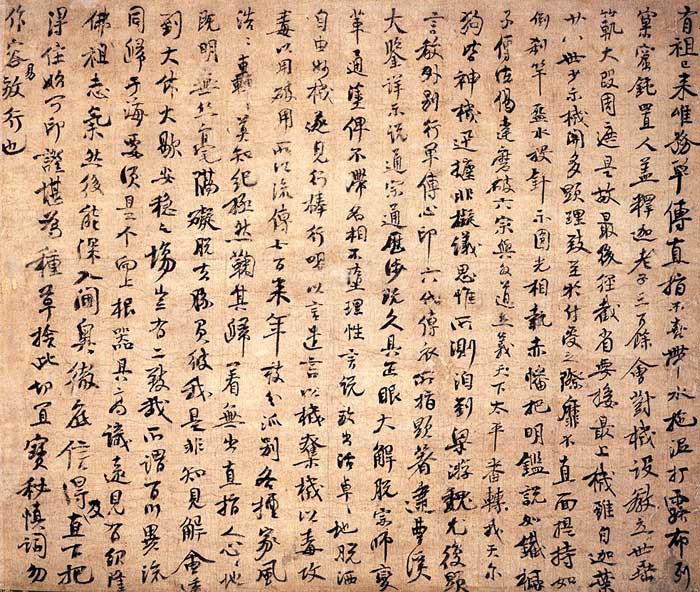 有祖已来唯務單傳直指不喜帶水拖泥打露布列
窠窟鈍置人蓋釋迦老子三百餘會對機設教立世垂
範大段周遮是故最後徑截省要接最上機雖自迦葉
廿八世少示機關多顯理致至於付受之際靡不直面提持如
倒刹竿盋水投針示圓光相執赤幡把明鑑説如鐵橛
子傳法偈達磨破六宗與外道立義天下太平番轉我天尔
狗皆神機迅捷非擬議思惟所測洎到梁游魏尤復顯
言教外別行單傳心印六代傳衣所指顯著逮曹溪
大鑒詳示説通宗通歷涉既久具正眼大解脱宗師變
革通塗俾不滯名相不墮理性言説放出活卓々地脱洒
自由妙機遂見行棒行喝以言遣言以機奪機以毒攻
毒以用破用所以流傳七百来年枝分派別各擅家風
浩々轟々莫知紀極然鞠其歸著無出直指人心々地
既明無絲毫隔礙脱去勝負彼我是非知見解會透
到大休大歇安穩之場豈有二致哉所謂百川異流
同歸于海要須是个向上根器具高識遠見有紹隆
佛祖志氣然後能深入閫奧徹底信得及直下把
得住始可印證堪為種草捨此切宜寶秘慎詞勿
作容易放行也